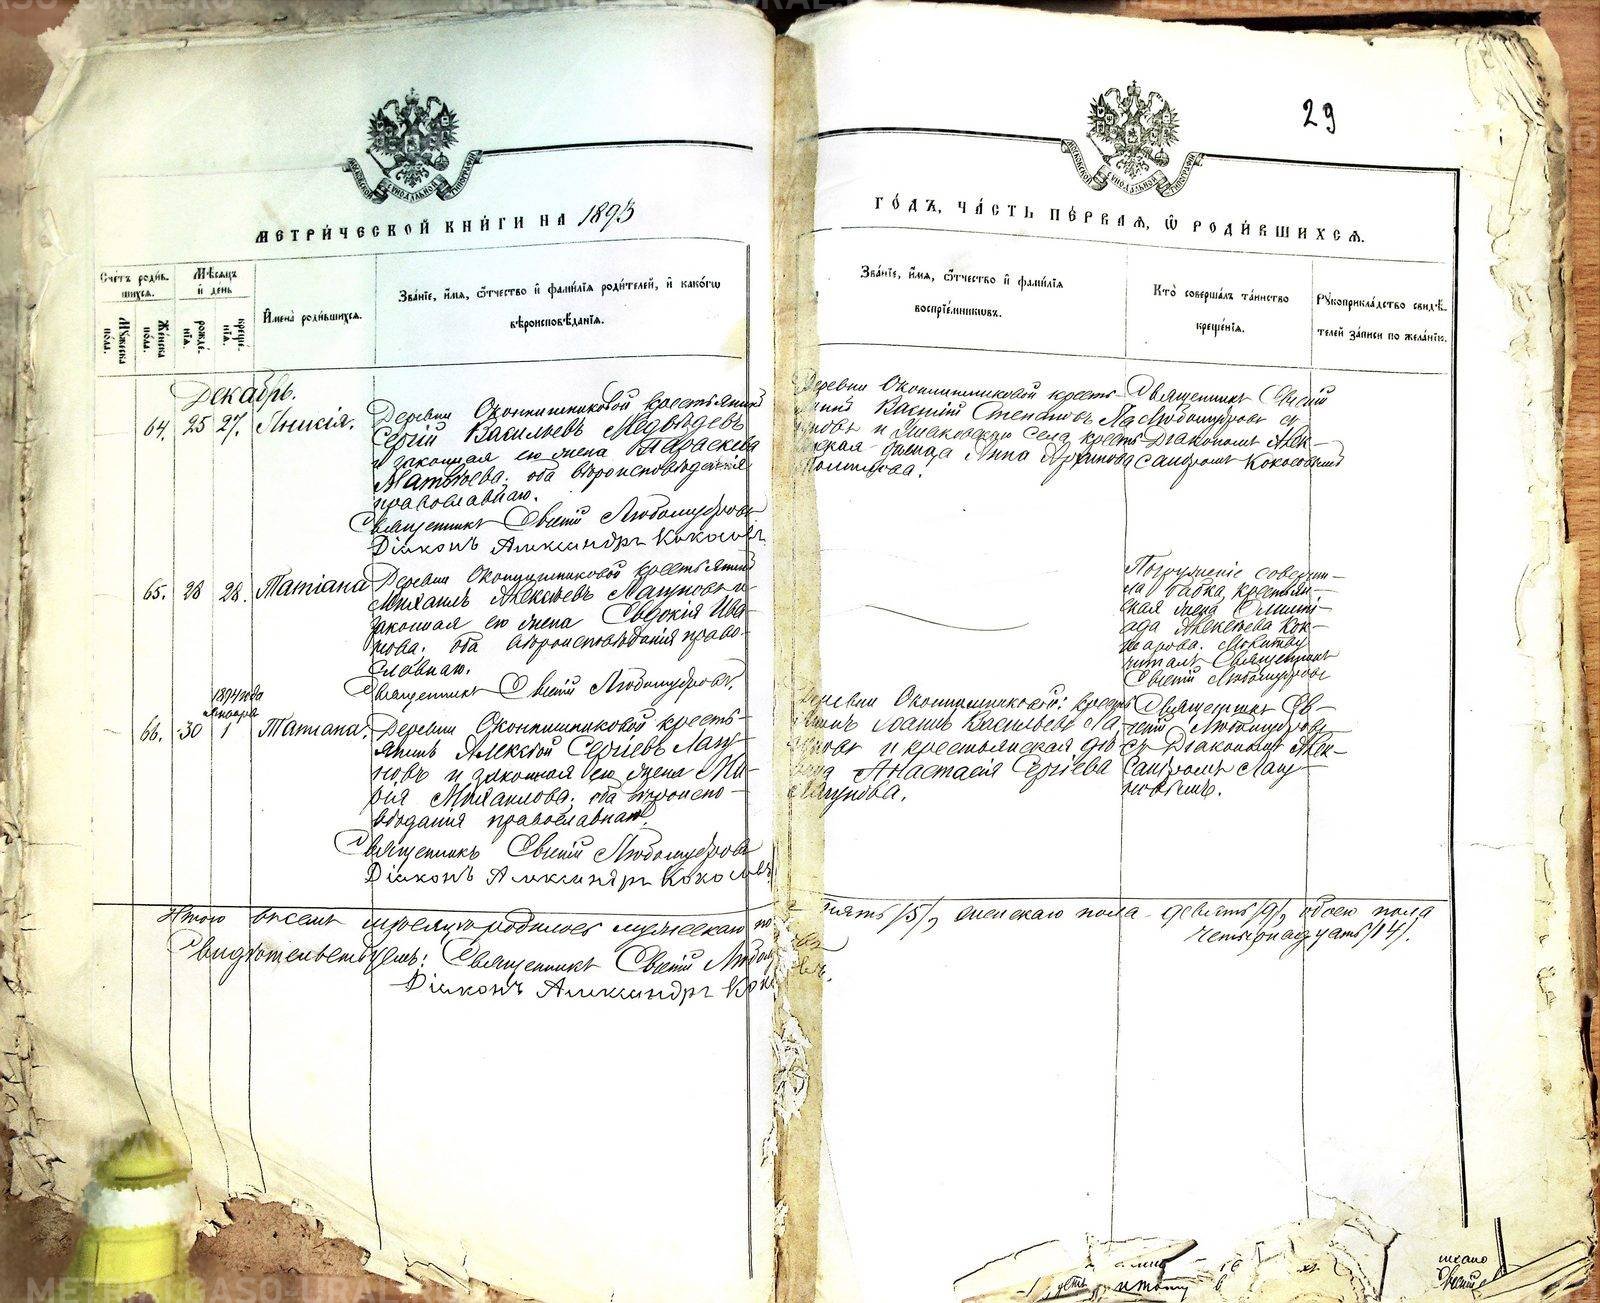 29
МОСКОВСКОЙ СѴНОДАЛЬНОЙ ТИПОГРАФІИ
МОСКОВСКОЙ СѴНОДАЛЬНОЙ ТИПОГРАФІИ
МЕТРИ́ЧЕСКОЙ КНИ́ГИ НА 1893
ГО́ДЪ, ЧА́СТЬ ПЕ́РВАЯ, Ѽ РОДИ́ВШИХСЯ.
Сче́тъ роди́в-
шихся.
Мꙋжеска
по́ла.
Же́нска
по́ла.
Мѣ́сяцъ
и҆ день
рожде́-
нїя.
креще́-
нїя.
И҆мена̀ роди́вшихся.
Зва́нїе, и҆́мя, ѻ҆́тчество и҆ фами́лїя роди́телей, и҆ како́гѡ
вѣроисповѣ́данїя.
Зва́нїе, и҆́мя, ѻ҆́тчество и҆ фами́лїя
воспрїе́мникѡвъ.
Кто̀ соверша́лъ та́инство
креще́нїя.
Рꙋкоприкла́дство свидѣ́-
телей за́писи по жела́нїю.
Декабрь.
64. 25 27. Анисія.
Деревни Оконишниковой крестьянинъ
Сергій Васильевъ Медвѣдевъ
и законная его жена Параскева
Матѳѣева; оба вѣроисповѣданія
православнаго.
Священникъ Евсегій Любомудровъ
Діаконъ Александръ Кокосовъ
Деревни Оконишниковой кресть-
Василій Степановъ
и села кресть-
Анна Архипова
Священникъ
Любомудровъ съ
Діакономъ Алек-
сандромъ Кокосовымъ
65. 28 28. Татіана
Деревни Оконишниковой крестьянинъ
Михаилъ Алексѣевъ Лагуновъ и
законная его жена Евдокія Ива-
нова; оба вѣроисповѣданія право-
славнаго.
Священникъ Любомудровъ.
Погруженіе соверши-
ла бабка, крестьян-
ская жена
Алексѣева
Молитву
читалъ Священникъ
Любомудровъ
1894 года
Января
66. 30 1 Татіана.
Деревни Оконишниковой кресть-
янинъ Алексѣй Сергіевъ Лагу-
новъ и законная его жена Ма-
рія Михаилова; оба вѣроиспо-
вѣданія православнаго.
Священникъ Любомудровъ
Діаконъ Александръ Кокосовъ
Деревни Оконишниковой: кресть-
янинъ Іоаннъ Васильевъ Ла-
гуновъ и крестьянская дѣ-
вица Анастасія Сергіева
Лагунова.
Священникъ
Любомудровъ
съ Діакономъ Алек-
сандромъ
Итого въ семъ мѣсяцѣ родилось мужескаго по-
пять /5/, женскаго пола девять /9/, обоего пола
четырнадцать /14/.
Свидѣтельствуемъ: Священникъ Любому
Діаконъ Александръ Коко
итого